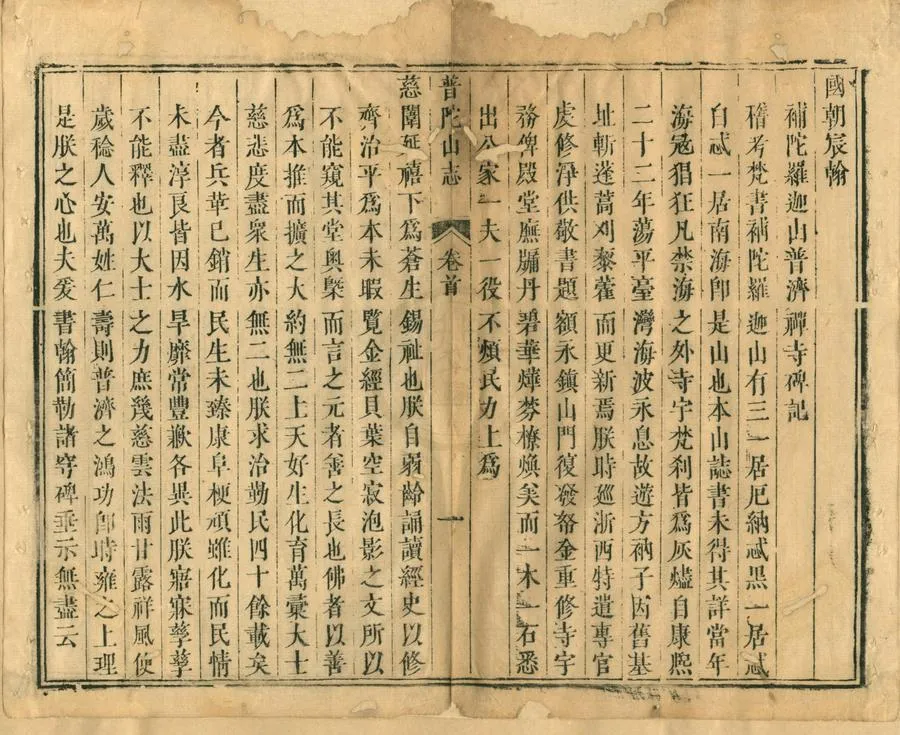 國朝宸翰
補陀羅迦山普濟禪寺碑記
稽考梵書補陀羅迦山有三一居厄納忒黑一居忒
白忒一居南海卽是山也本山誌書未得其詳當年
海寇猖狂凡禁海之外寺宇梵刹皆爲灰燼自康熙
二十二年蕩平臺灣海波永息故遊方衲子因舊基
址斬蓬蒿刈藜藿而更新焉朕時廵浙西特遣專官
虔修淨供敬書題額永鎮山門復發帑金重修寺宇
務俾殿堂廡牖丹碧華燁棼橑煥矣而一木一石悉
出公家一夫一役不煩民力上爲
普陀山志
卷首
一
慈闈延禧下爲蒼生錫祉也朕自弱齡誦讀經史以修
齊治平爲本未暇覽金經貝葉空寂泡影之文所以
不能窺其堂奧槩而言之元者善之長也佛者以善
爲本推而擴之大約無二上天好生化育萬彙大士
慈悲度盡衆生亦無二也朕求治勤民四十餘載矣
今者兵革已銷而民生未臻康阜梗頑雖化而民情
未盡淳良皆因水旱靡常豐歉各異此朕寤寐孳孳
不能釋也以大士之力庶幾慈雲法雨甘露祥風使
歲稔人安萬姓仁壽則普濟之鴻功卽時雍之上理
是朕之心也夫爰書翰簡勒諸穹碑垂示無盡云